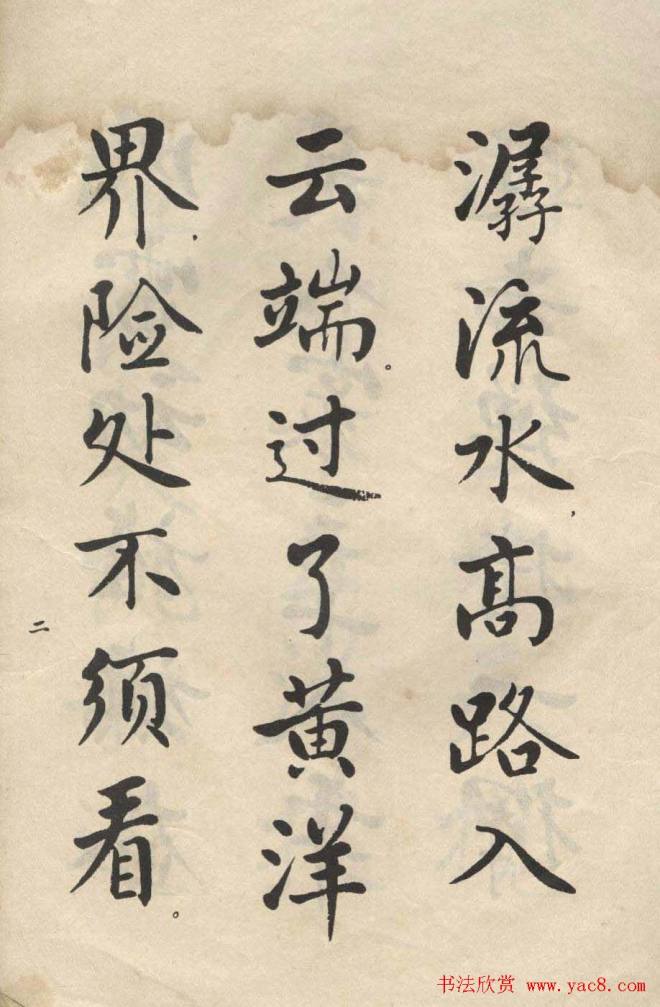 潺流水,高路入
云端。过了黄洋
界,险处不须看。
二
书法欣赏 www.yac8.com